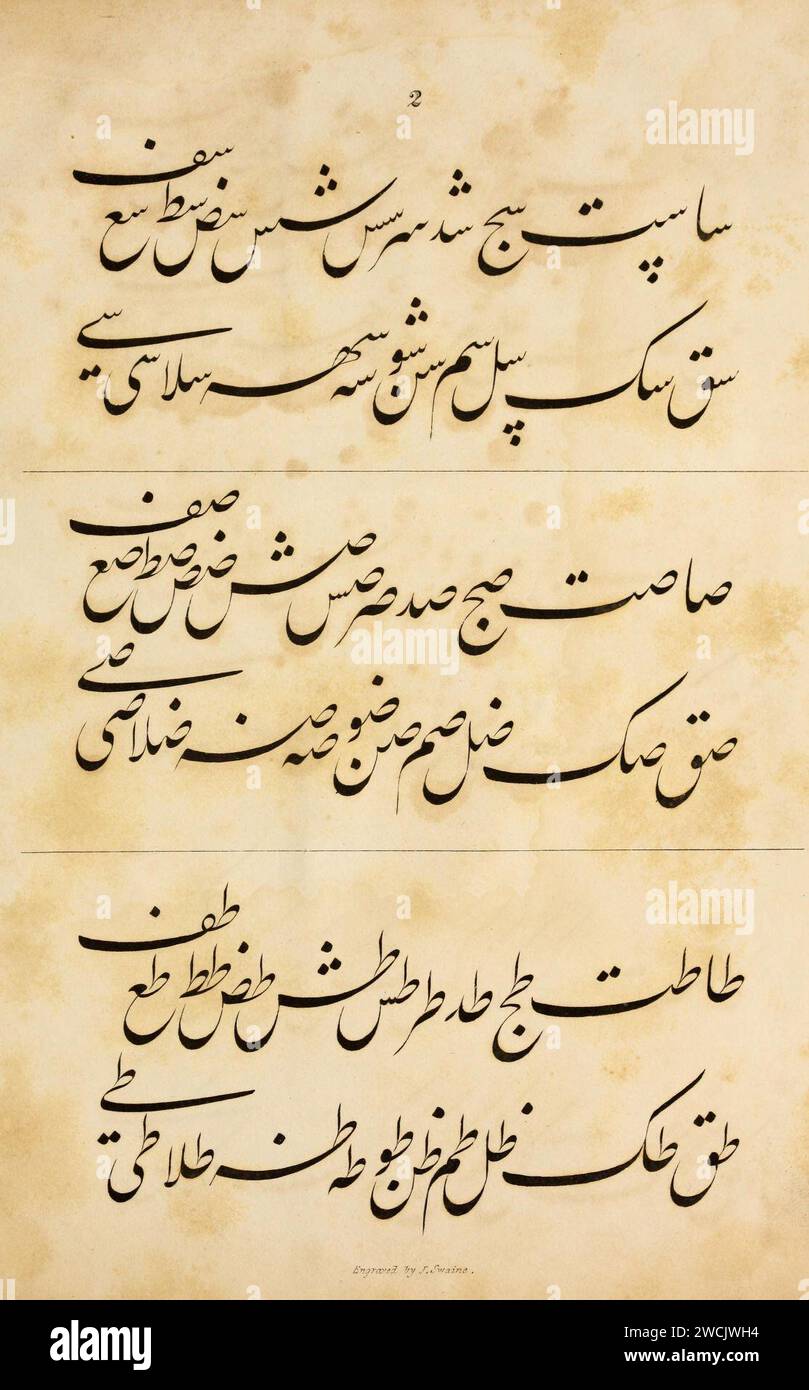 2
سا سپت سج شد سر سس شس سض سط سع سف
سق سک سپل سم سن شو سه سهه سلا سی سے
صا صت صج صد صر صس صش ضص صط صع صف
صق صک ضل صم صن ضو صه صنه ضلا صی صے
طا طت طج طد طر طس طش طض طط طع طف
طق طک ظل طم ظن طو طه طنه طلا طی طے
Engraved by J. Swaine.
alamy
Image ID: 2WCJWH4
www.alamy.com